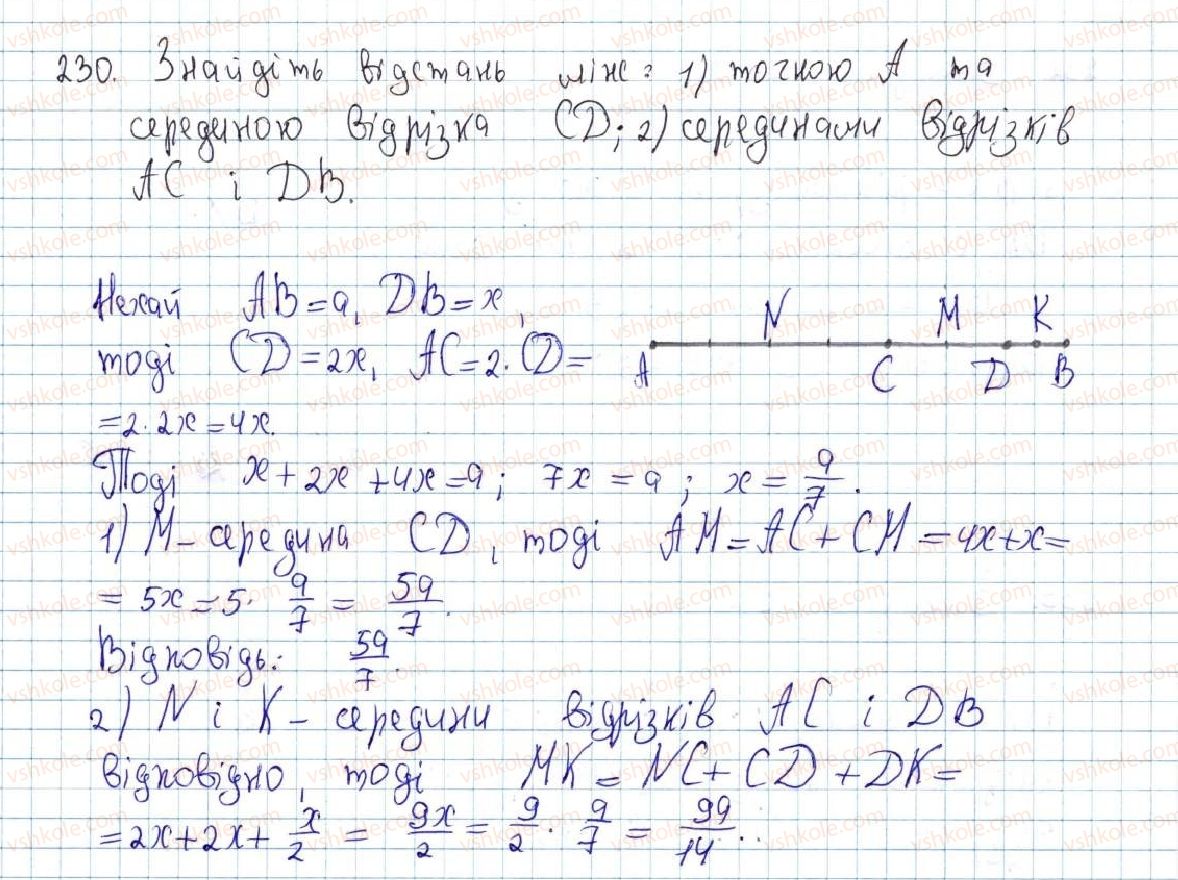 230. Знайдіть відстань між: 1) точкою A та
серединою відрізка CD; 2) серединами відрізків
AC і DB.
Нехай AB = a, DB = x,
тоді CD = 2x, AC = 2 · CD =
= 2 · 2x = 4x.
N M K
A C D B
Тоді x + 2x + 4x = a; 7x = a; x = a/7.
1) M – середина CD, тоді AM = AC + CM = 4x + x =
= 5x = 5 · a/7 = 5a/7.
Відповідь: 5a/7.
2) N і K – середини відрізків AC і DB
відповідно, тоді MK = NC + CD + DK =
= 2x + 2x + x/2 = 9x/2 = 9/2 · a/7 = 9a/14..
vshkole.com